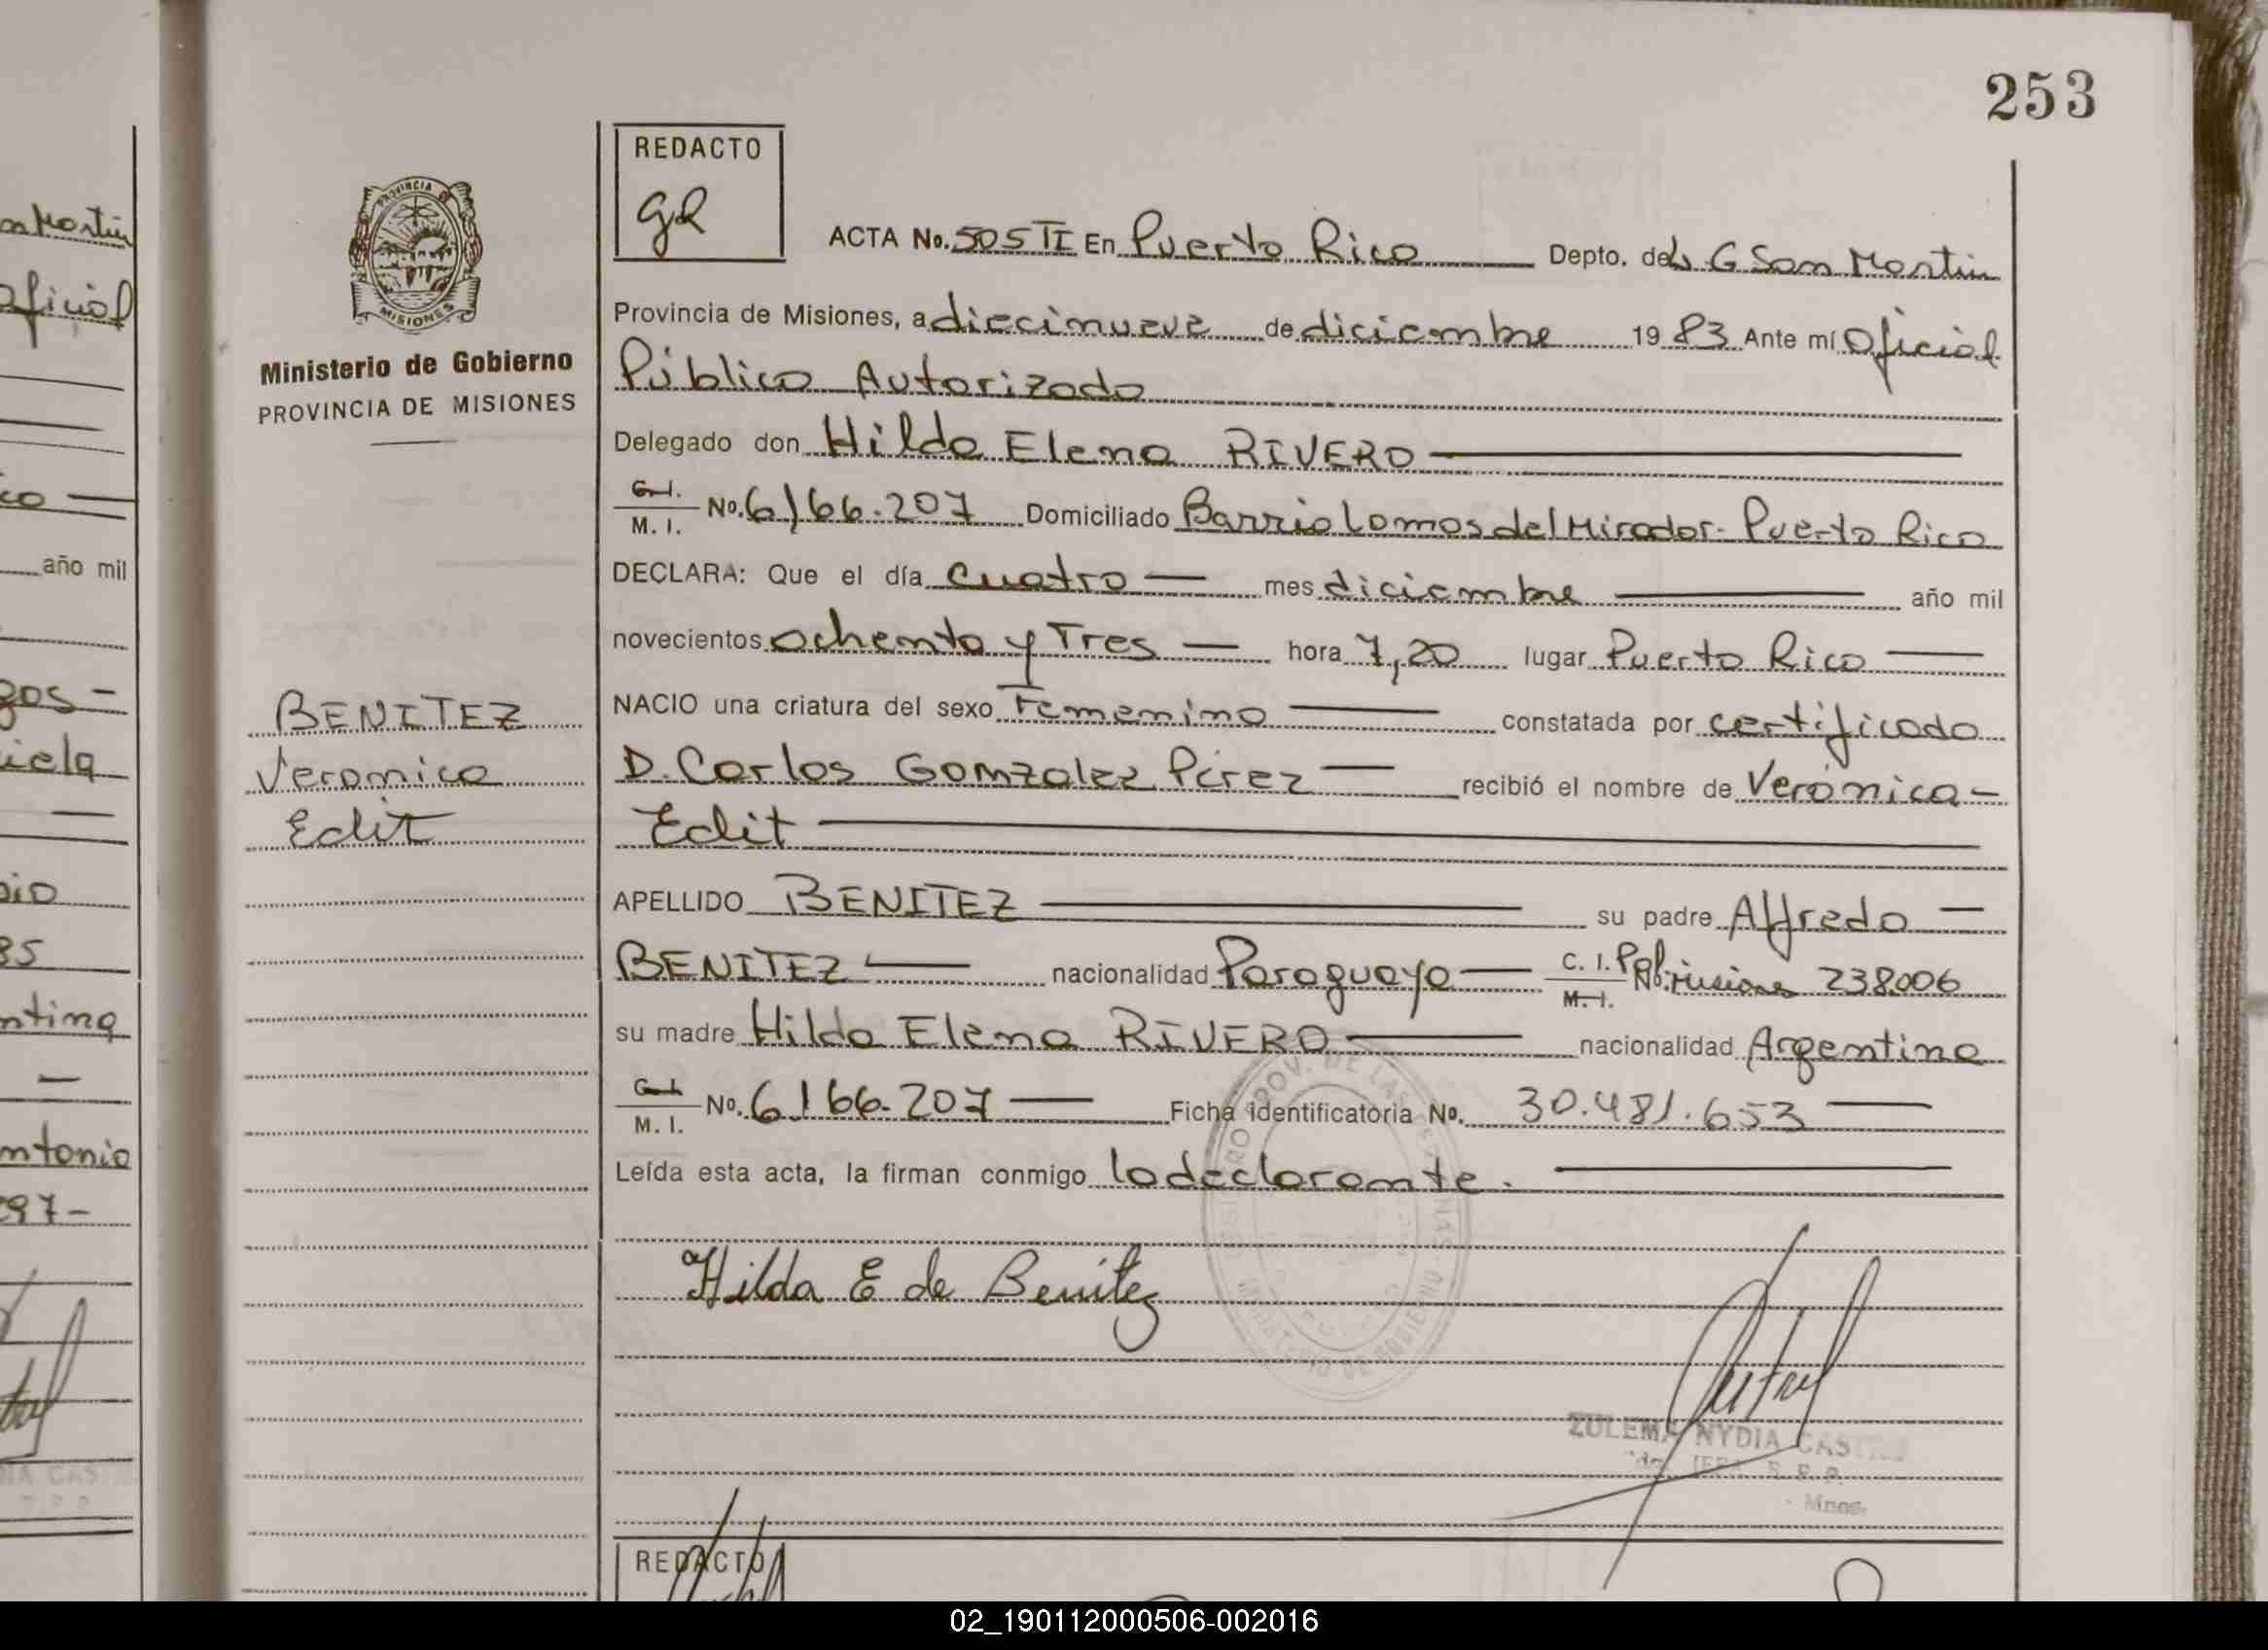 253
REDACTO
gR
ACTA No. 505 TI En Puerto Rico Depto. de L G San Martin
Provincia de Misiones, a diecinueve de diciembre 1983 Ante mí Oficial
Público Autorizado
Delegado don Hilda Elena RIVERO
C. I. M. I. No. 6166.207 Domiciliado Barrio Lomas del Mirador- Puerto Rico
DECLARA: Que el día cuatro — mes diciembre año mil
novecientos ochenta y Tres — hora 7,20 lugar Puerto Rico —
NACIO una criatura del sexo Femenino — constatada por certificado
D. Carlos Gonzalez Pérez — recibió el nombre de Verónica —
Edit
APELLIDO BENITEZ su padre Alfredo —
BENITEZ — nacionalidad Paraguaya — C. I. M. I. No. Pol. Misiones 238006
su madre Hilda Elena RIVERO nacionalidad Argentina
C. I. M. I. No. 6166.207 — Ficha identificatoria No. 30.481.653 —
Leída esta acta, la firman conmigo la declarante.
Hilda E de Benitez
ZULEMA NYDIA
REDACTO
PROVINCIA
MISIONES
Ministerio de Gobierno
PROVINCIA DE MISIONES
BENITEZ
Veronica
Edit
n Martin
Oficial
co —
año mil
gos —
iela
oio
85
ntina
ntonio
297-
02_190112000506-002016